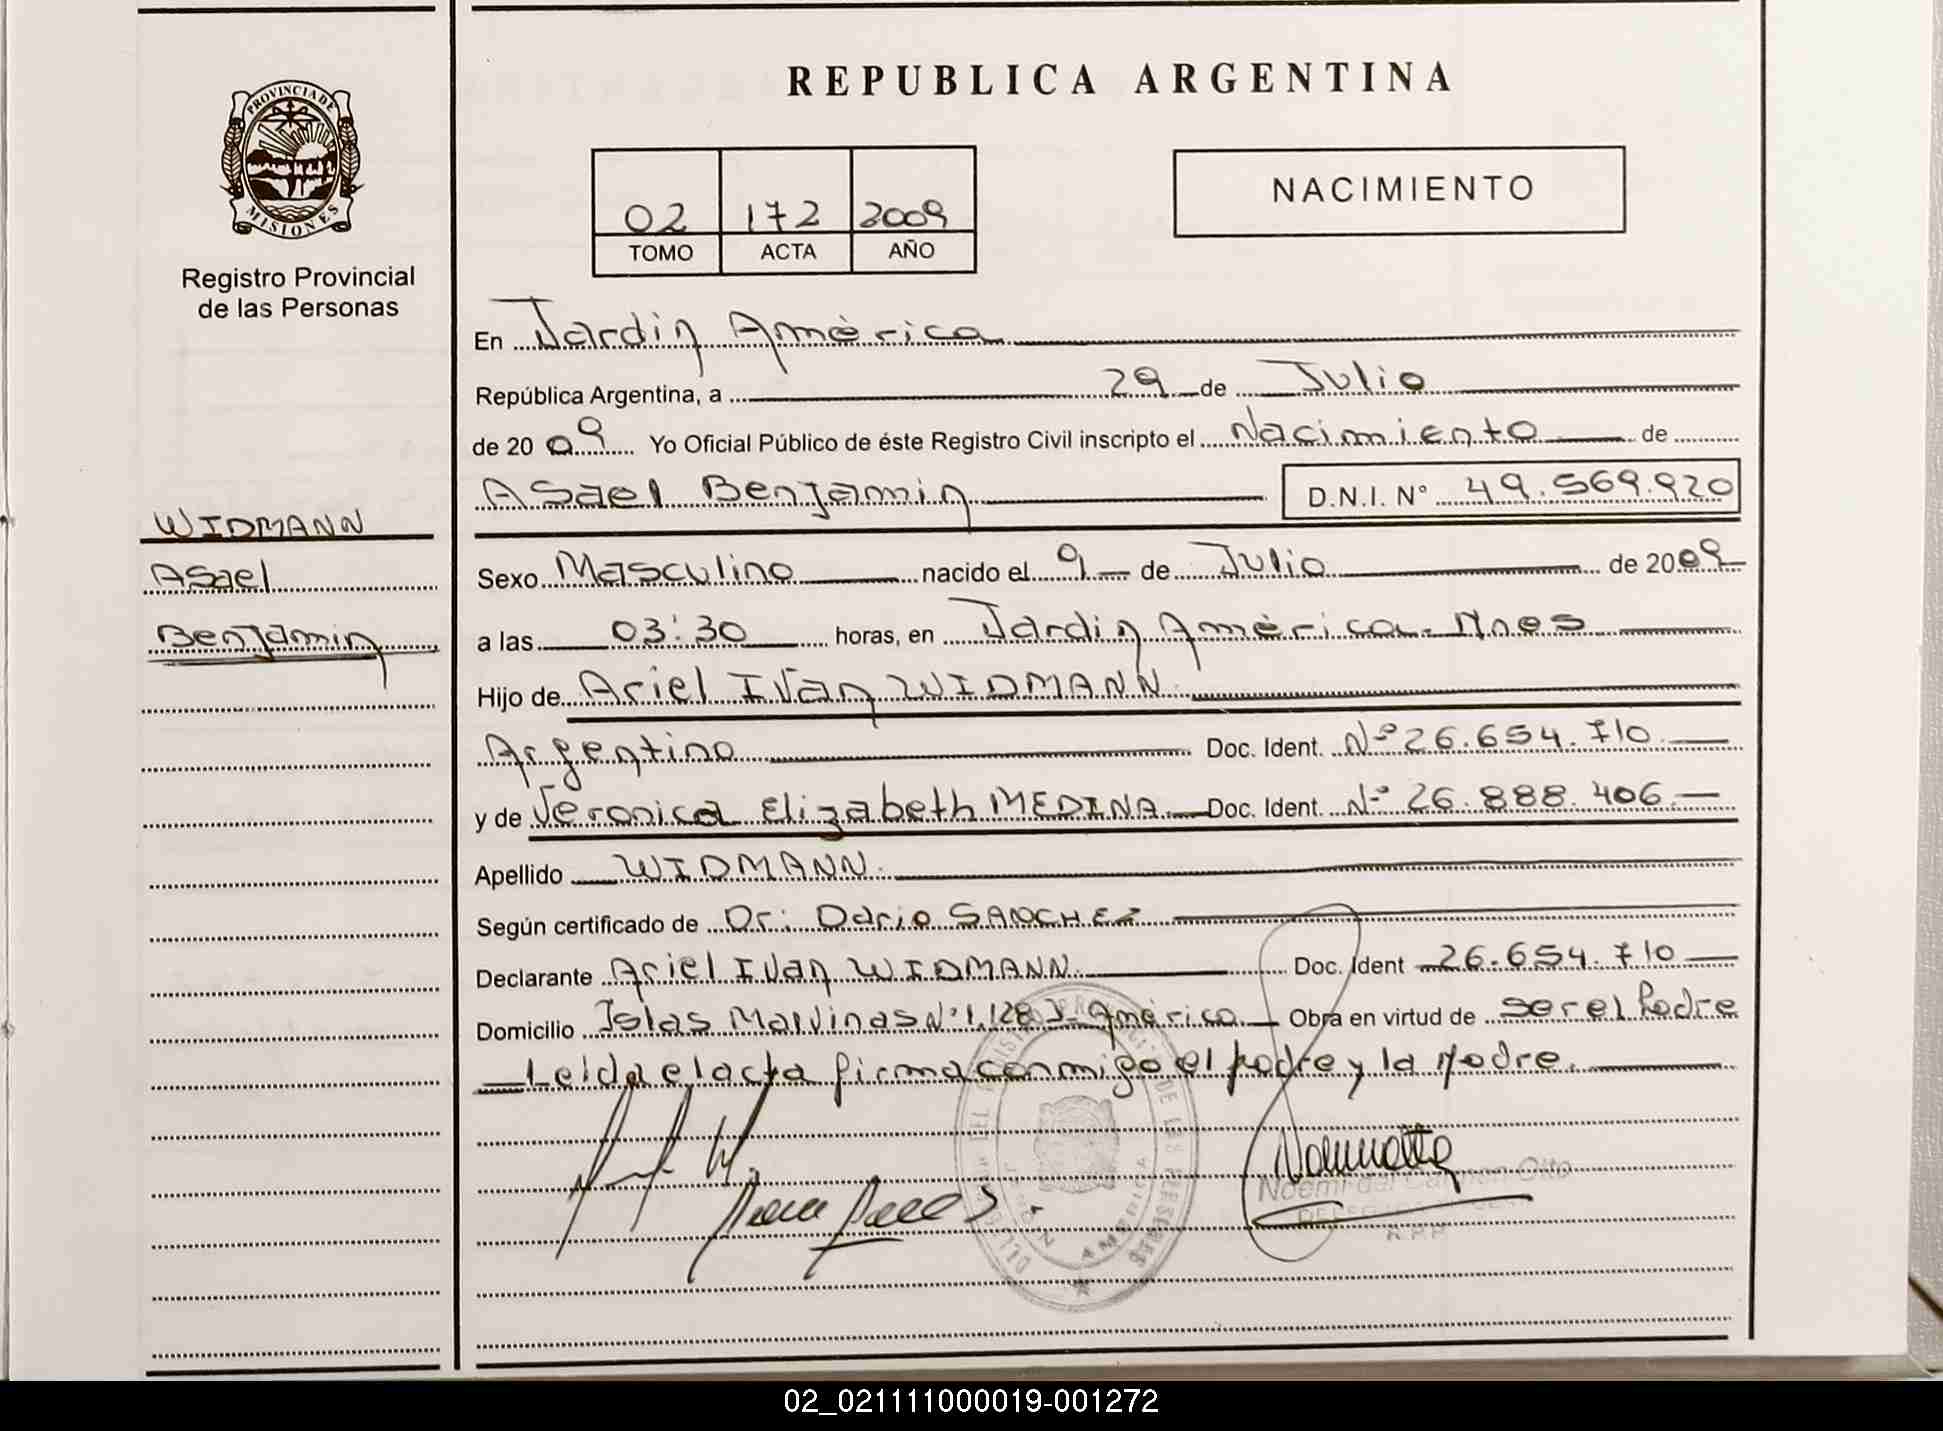 PROVINCIA DE
MISIONES
Registro Provincial
de las Personas
WIDMANN
Asael
Benjamin
REPUBLICA ARGENTINA
02 172 2009
TOMO ACTA AÑO
NACIMIENTO
En Jardin América
República Argentina, a 29 de Julio
de 20 09 Yo Oficial Público de éste Registro Civil inscripto el Nacimiento de
Asael Benjamin D.N.I. N° 49.569.920
Sexo Masculino nacido el 9 de Julio de 2009
a las 03:30 horas, en Jardin América - Mnes
Hijo de Ariel Iván WIDMANN
Argentino Doc. Ident. Nº 26.654.710
y de Veronica Elizabeth MEDINA Doc. Ident. Nº 26.888.406
Apellido WIDMANN
Según certificado de Dr: Dario SANCHEZ
Declarante Ariel Iván WIDMANN Doc. Ident 26.654.710
Domicilio Islas Malvinas Nº 1.128 J. América Obra en virtud de ser el Padre
Leida el acta firma conmigo el padre y la Madre.
Noemi del Carmen Otto
02_021111000019-001272